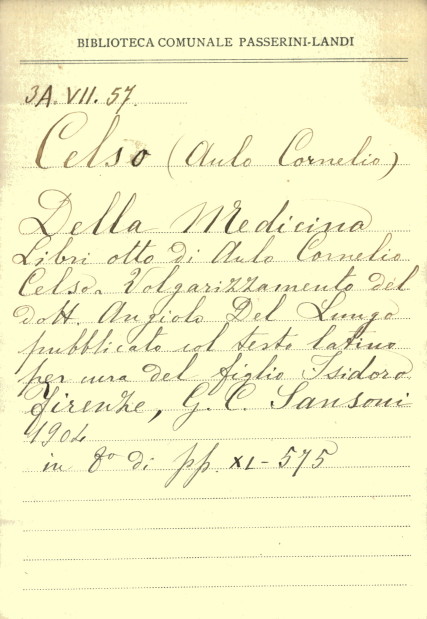 BIBLIOTECA COMUNALE PASSERINI-LANDI
3A. VII. 57.
Celso (Aulo Cornelio)
Della Medicina
Libri otto di Aulo Cornelio
Celso. Volgarizzamento del
dott. Angiolo Del Lungo
pubblicato col testo latino
per cura del figlio Isidoro.
Firenze, G. C. Sansoni
1904
in 8º di pp. XL-575